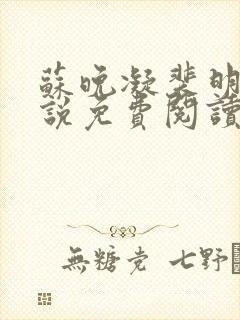 蘇晚凝裴明
說免費閱讀
無糖党 七野